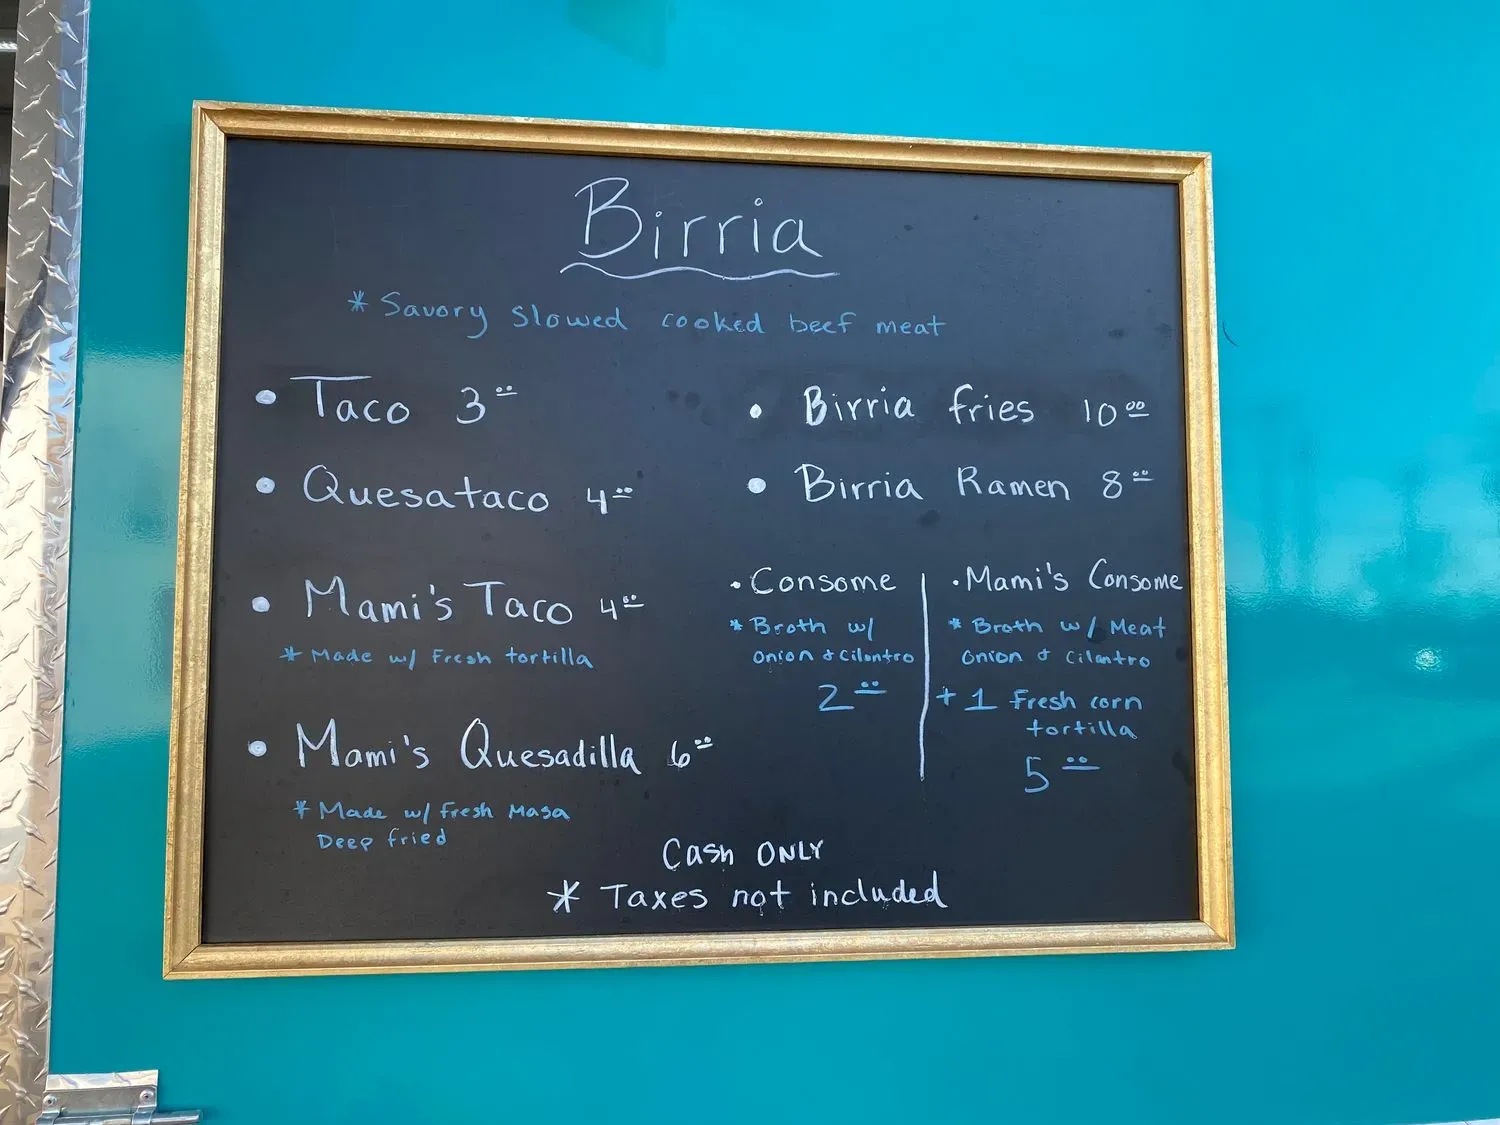 Birria
* Savory slowed cooked beef meat
• Taco 3.00
• Quesataco 4.00
• Mami's Taco 4.00
* Made w/ Fresh tortilla
• Mami's Quesadilla 6.00
* Made w/ fresh Masa
Deep fried
• Birria fries 10.00
• Birria Ramen 8.00
• Consome
* Broth w/
Onion & Cilantro
2.00
• Mami's Consome
* Broth w/ Meat
Onion & Cilantro
+ 1 Fresh corn
tortilla
5.00
Cash ONLY
* Taxes not included